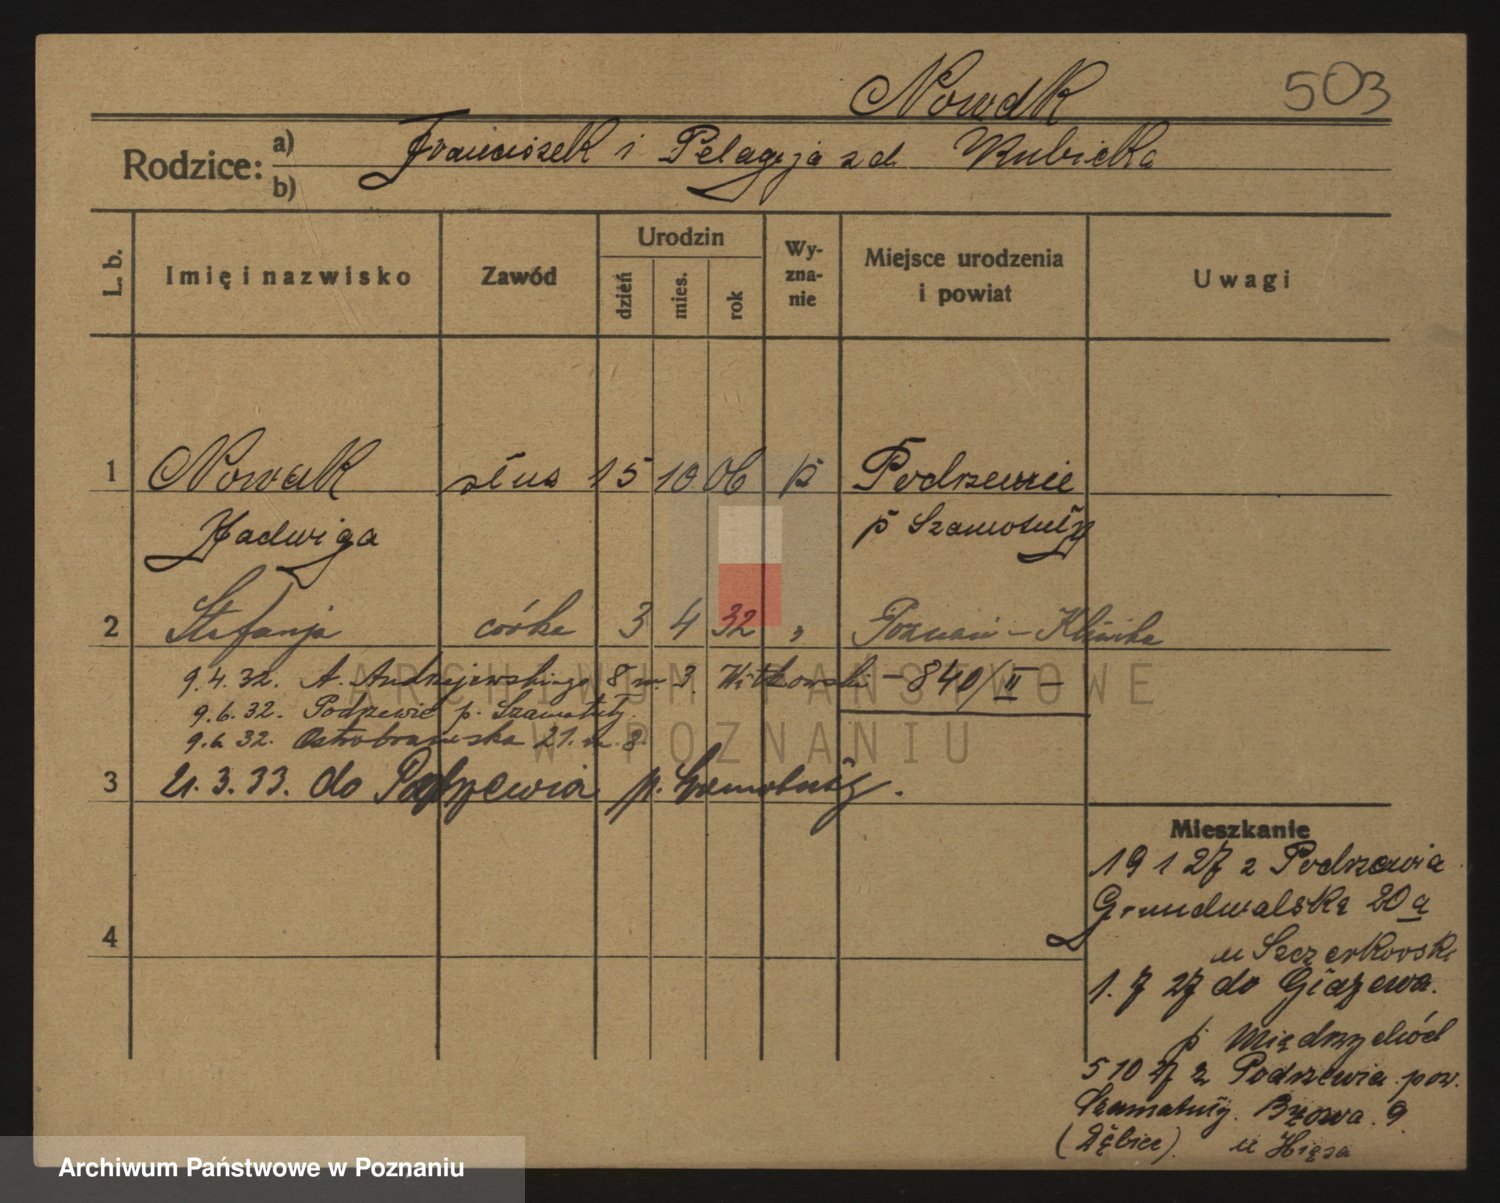 Nowak
503
Rodzice: a) Franciszek i Pelagja z d. Kubicka
b)
L. b. Imię i nazwisko Zawód Urodzin dzień mies. rok Wy-zna-nie Miejsce urodzenia i powiat Uwagi
1 Nowak służ 15 10 06 Podrzewie
Jadwiga p Szamotuły
2 Stefanja córka 3 4 32 „ Poznań – Klinika
9.4.32. A. Andrzejewskiego 8 m. 3. Witkowski – 840/II –
9.6.32. Podrzewie p. Szamotuły
9.6.32. Ostrobramska 21. m. 8.
3 21.3.33. do Podrzewia p. Szamotuły.
Mieszkanie
19 1 27 z Podrzewia
Grundwalska 20 a
4
u Szczerkowski
1. 7 27 do
p Międzychód
5 10 27 z Podrzewia pow.
Szamotuły. Bzowa. 9
(Dębiec). u
ARCHIWUM PAŃSTWOWE
W POZNANIU
Archiwum Państwowe w Poznaniu